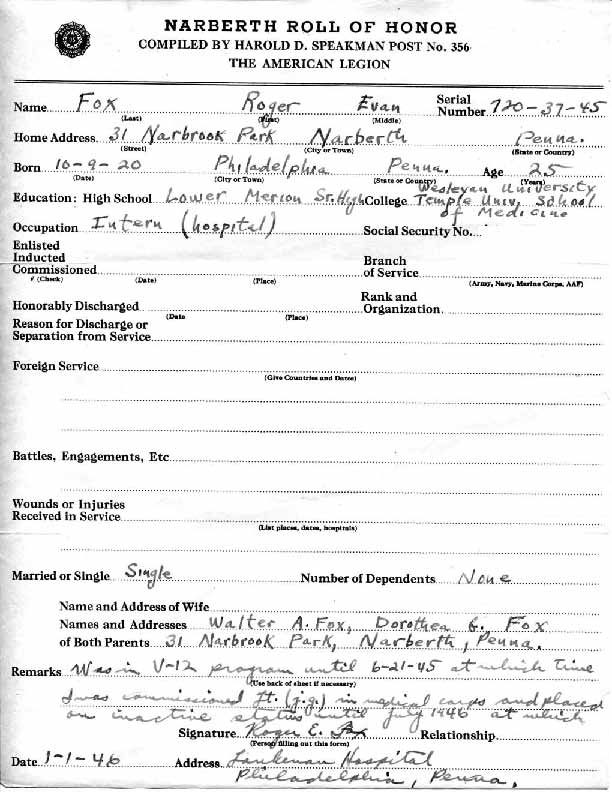 NARBERTH ROLL OF HONOR
COMPILED BY HAROLD D. SPEAKMAN POST No. 356
THE AMERICAN LEGION
Name Fox Roger Evan Serial Number 720-37-45
(Last) (First) (Middle)
Home Address 31 Narbrook Park Narberth Penna.
(Street) (City or Town) (State or Country)
Born 10-9-20 Philadelphia Penna. Age 25
(Date) (City or Town) (State or Country) (Years)
Wesleyan University
Education: High School Lower Merion Sr. High College Temple Univ. School
of Medicine
Occupation Intern (hospital) Social Security No.
Enlisted
Inducted Branch
Commissioned of Service
✓ (Check) (Date) (Place) (Army, Navy, Marine Corps, AAF)
Honorably Discharged Rank and Organization
(Date (Place)
Reason for Discharge or
Separation from Service
Foreign Service
(Give Countries and Dates)
Battles, Engagements, Etc
Wounds or Injuries
Received in Service
(List places, dates, hospitals)
Married or Single Single Number of Dependents None
Name and Address of Wife
Names and Addresses Walter A. Fox, Dorothea E. Fox
of Both Parents 31 Narbrook Park, Narberth, Penna.
Remarks Was in V-12 program until 6-21-45 at which time
(Use back of sheet if necessary)
I was commissioned Lt. (j.g.) in medical corps and placed
on inactive status until July 1946 at which
Signature Roger E. Fox Relationship
(Person filling out this form)
Date 1-1-46 Address Lankenau Hospital
Philadelphia, Penna.